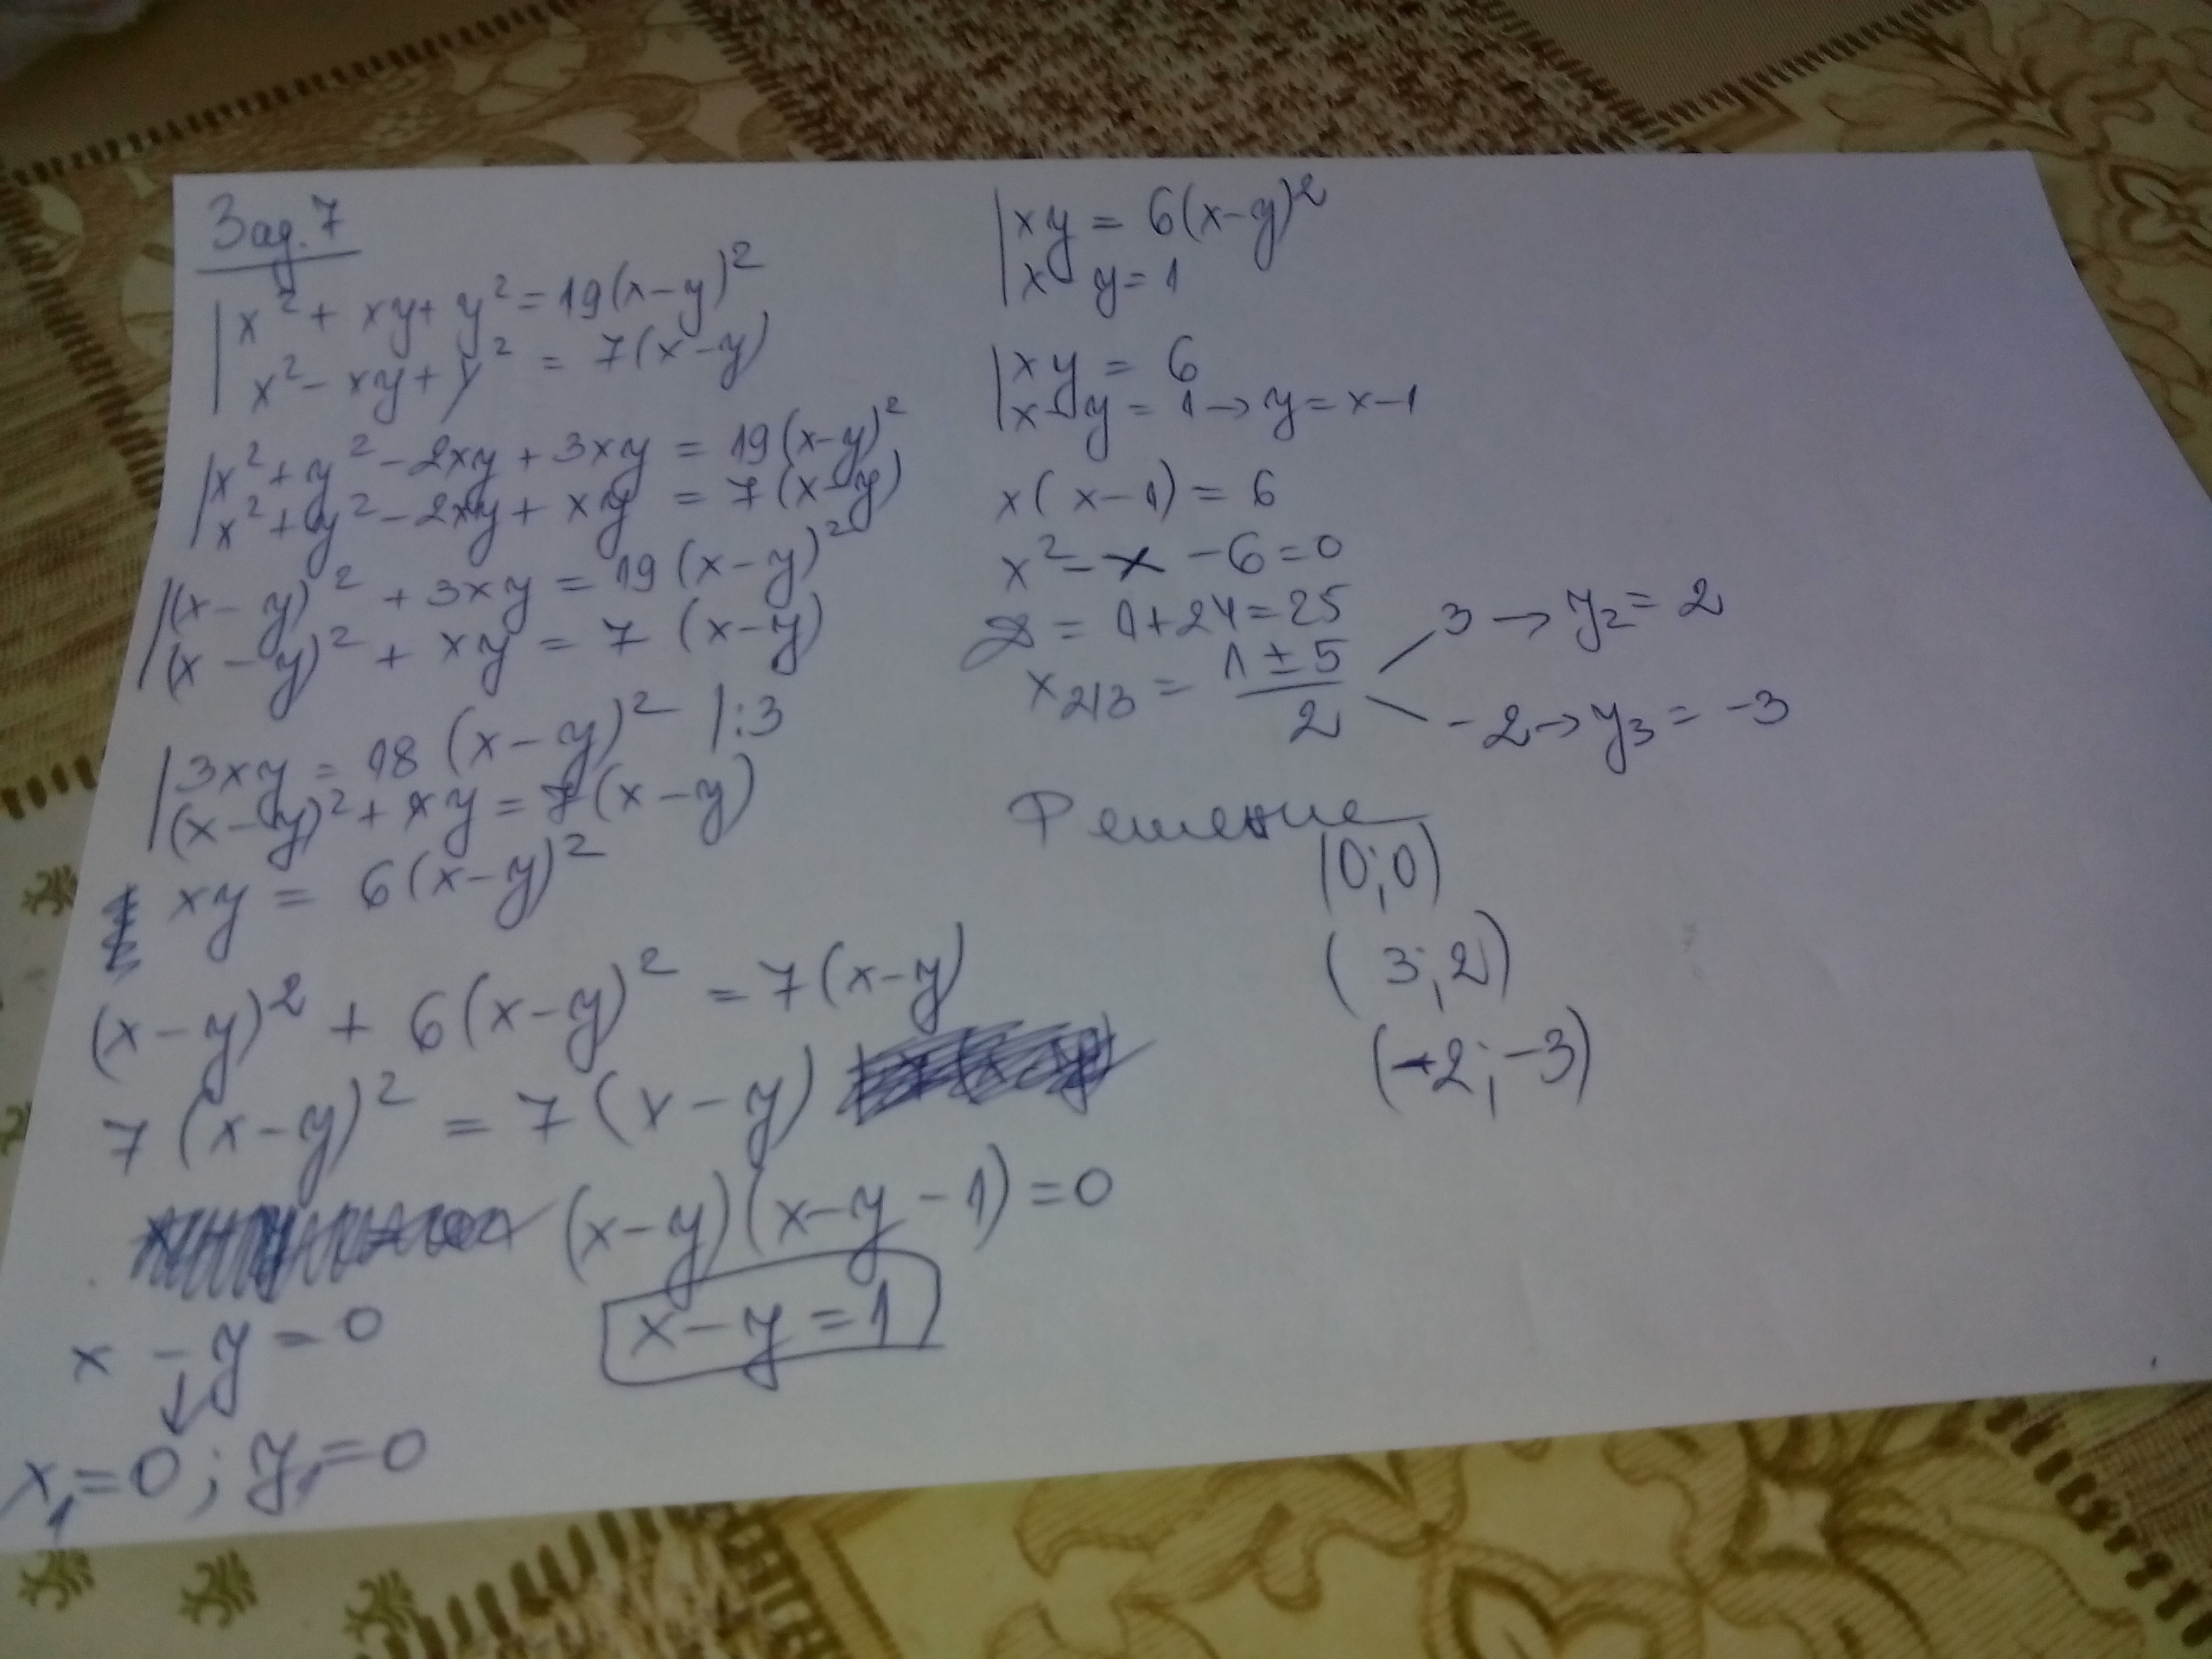 Зад. 7
x² + xy + y² = 19(x-y)²
x² - xy + y² = 7(x-y)
x² + y² - 2xy + 3xy = 19(x-y)²
x² + y² - 2xy + xy = 7(x-y)
(x-y)² + 3xy = 19(x-y)²
(x-y)² + xy = 7(x-y)
3xy = 18(x-y)² |:3
(x-y)² + xy = 7(x-y)
xy = 6(x-y)²
(x-y)² + 6(x-y)² = 7(x-y)
7(x-y)² = 7(x-y)
(x-y)(x-y-1)=0
x-y=0
x-y=1
x₁=0; y₁=0
xy = 6(x-y)²
x-y=1
xy = 6
x-y = 1 → y = x-1
x(x-1) = 6
x² - x - 6 = 0
D = 1+24 = 25
x₂/₃ = (1 ± 5)/2
3 → y₂ = 2
-2 → y₃ = -3
Решение
(0;0)
(3;2)
(-2;-3)